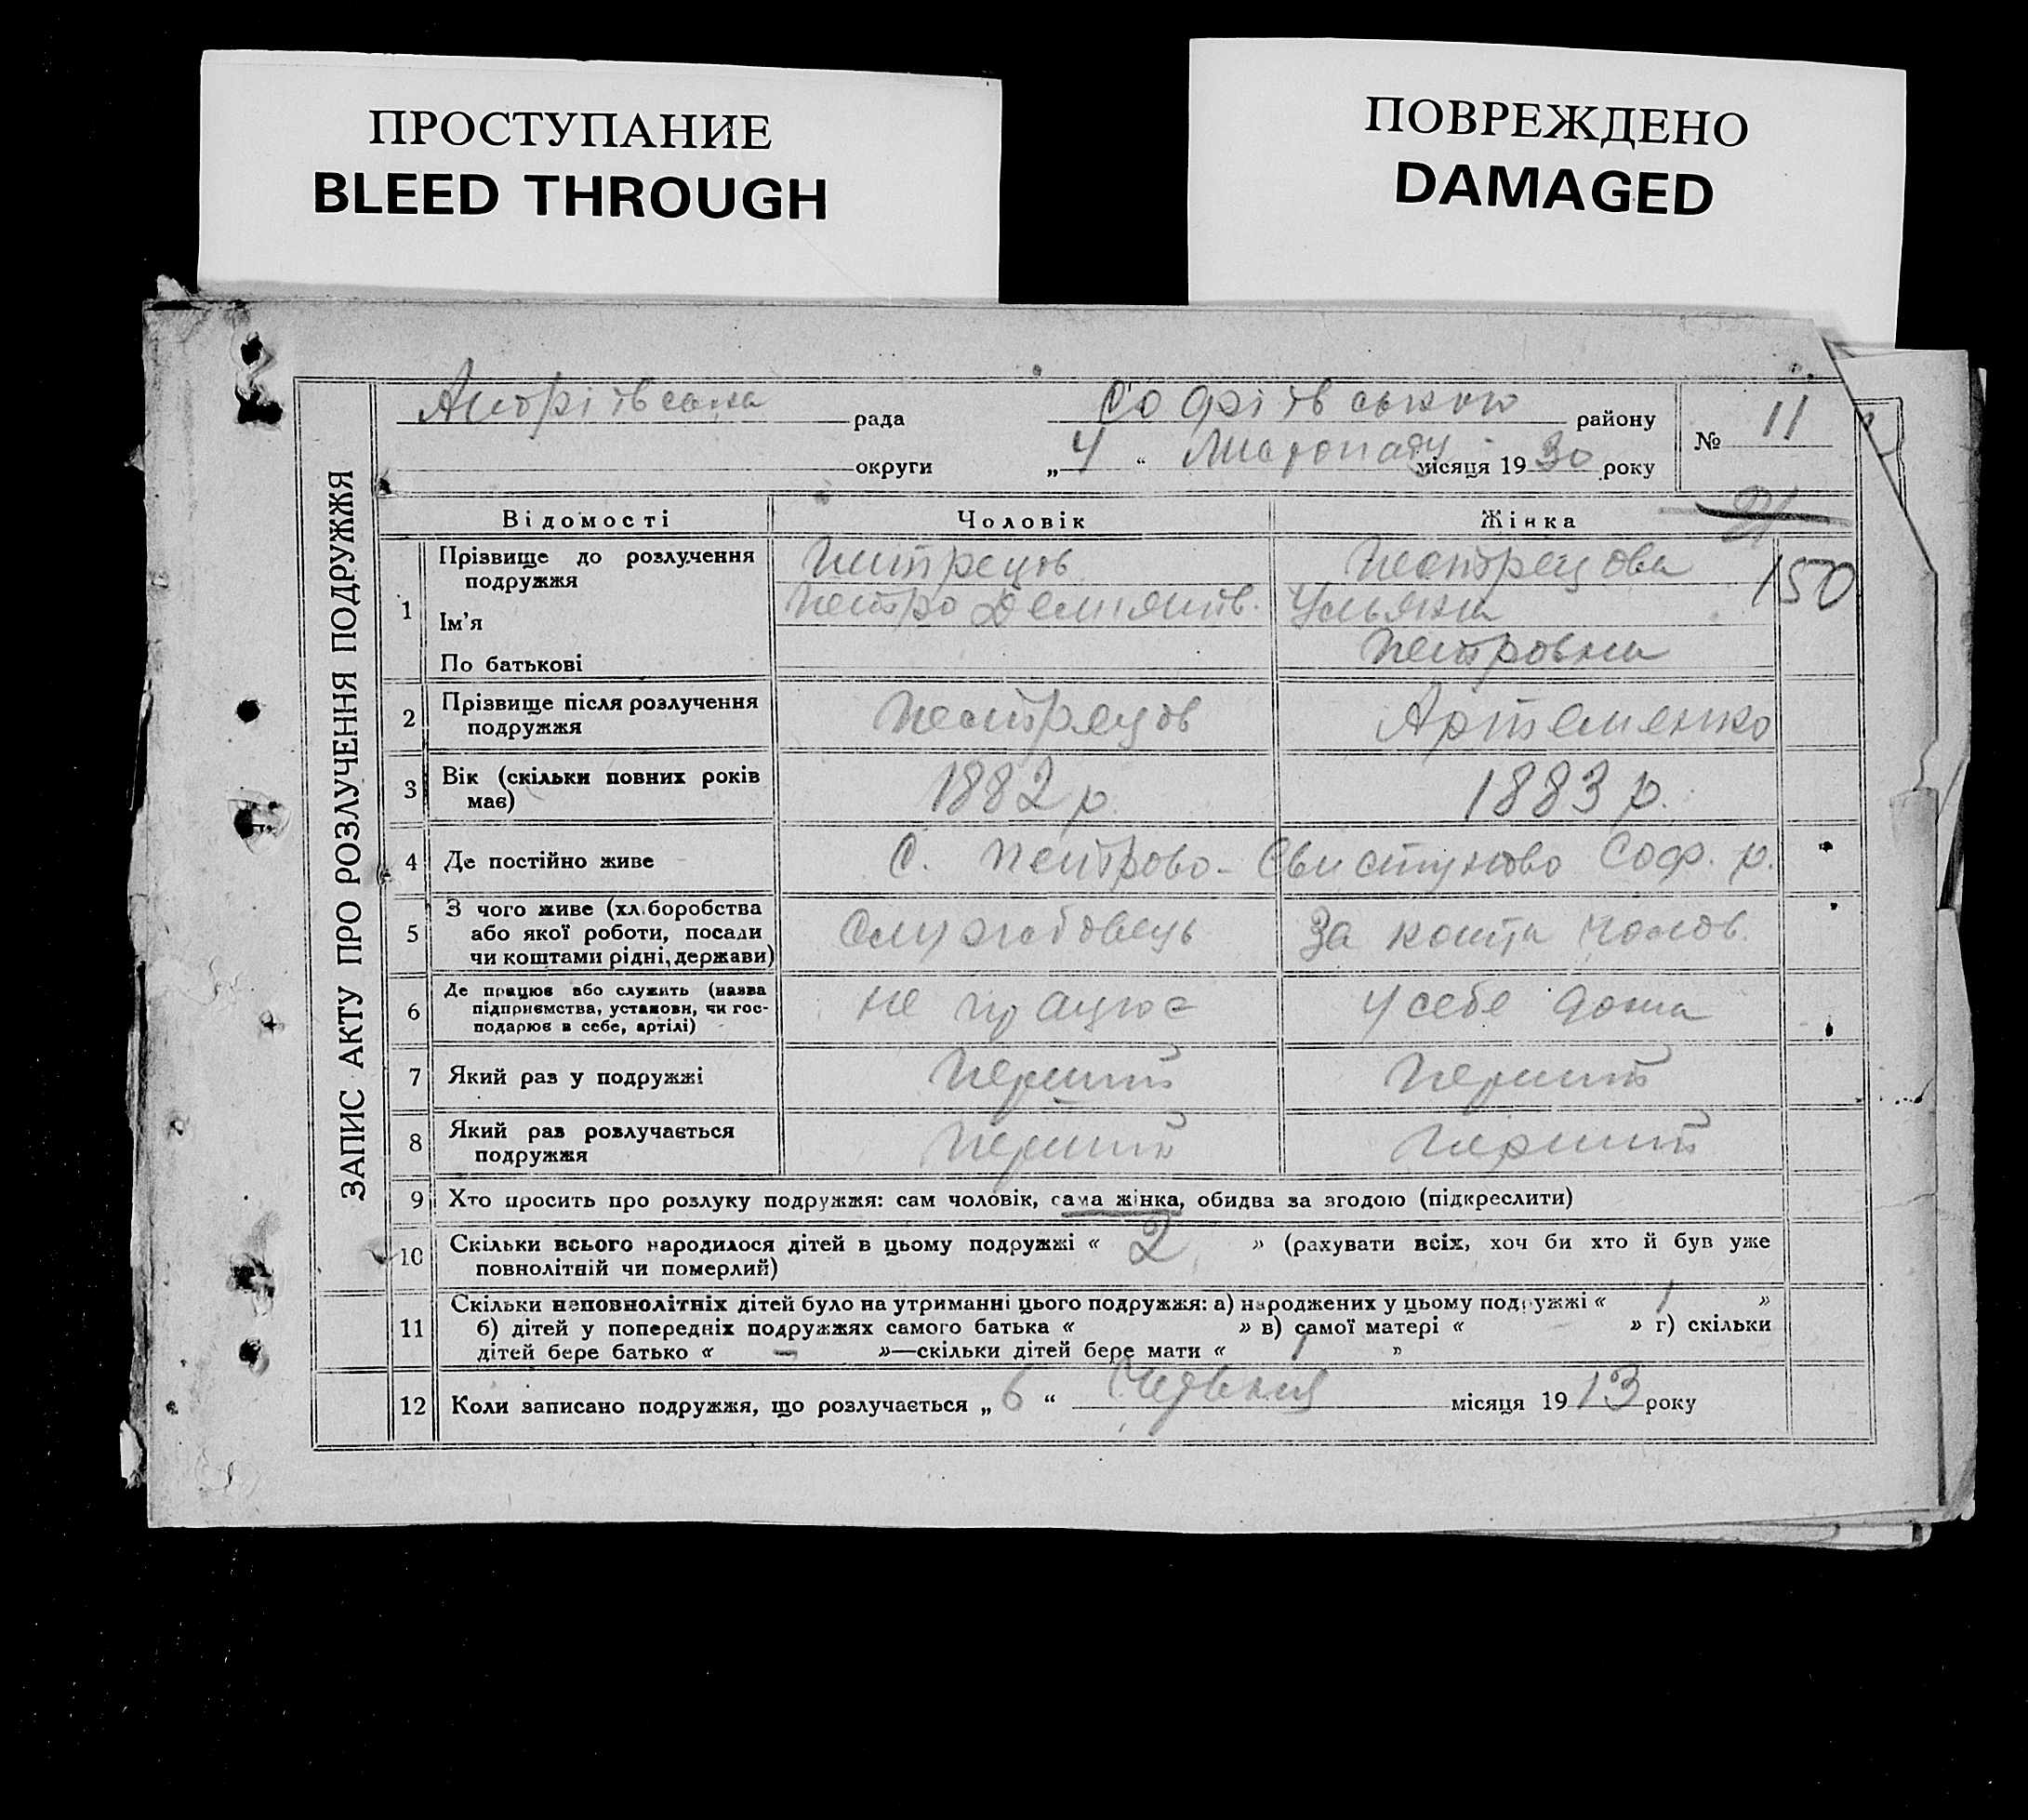 ПРОСТУПАНИЕ
BLEED THROUGH
ПОВРЕЖДЕНО
DAMAGED
ЗАПИС АКТУ ПРО РОЗЛУЧЕННЯ ПОДРУЖЖЯ
рада Софіївського району № 11
округи „ 4 “ Листопаду місяця 19 30 року
Відомості Чоловік Жінка 21
150
1 Прізвище до розлучення подружжя Пестрецова
Ім'я Петро Демʼянів. Уляна
По батькові Петровна
2 Прізвище після розлучення
подружжя Пестрецов Артеменко
3 Вік (скільки повних років
має) 1882 р. 1883 р.
4 Де постійно живе С. Петрово-Свистуново Соф. р.
5 З чого живе (хл.боробства
або якої роботи, посади
чи коштами рідні, держави) Службовець За кошти чолов.
6 Де працює або служить (назва
підприємства, установи, чи гос-
подарює в себе, артілі) не працює у себе дома
7 Який раз у подружжі Перший Перший
8 Який раз розлучається
подружжя Перший Перший
9 Хто просить про розлуку подружжя: сам чоловік, сама жінка, обидва за згодою (підкреслити)
10 Скільки всього народилося дітей в цьому подружжі « 2 » (рахувати всіх, хоч би хто й був уже
повнолітній чи померлий)
11 Скільки неповнолітніх дітей було на утриманні цього подружжя: а) народжених у цьому подружжі « 1 »
б) дітей у попередніх подружжях самого батька « » в) самої матері « » г) скільки
дітей бере батько « – »—скільки дітей бере мати « 1 »
12 Коли записано подружжя, що розлучається „ 6 “ Червня місяця 19 13 року